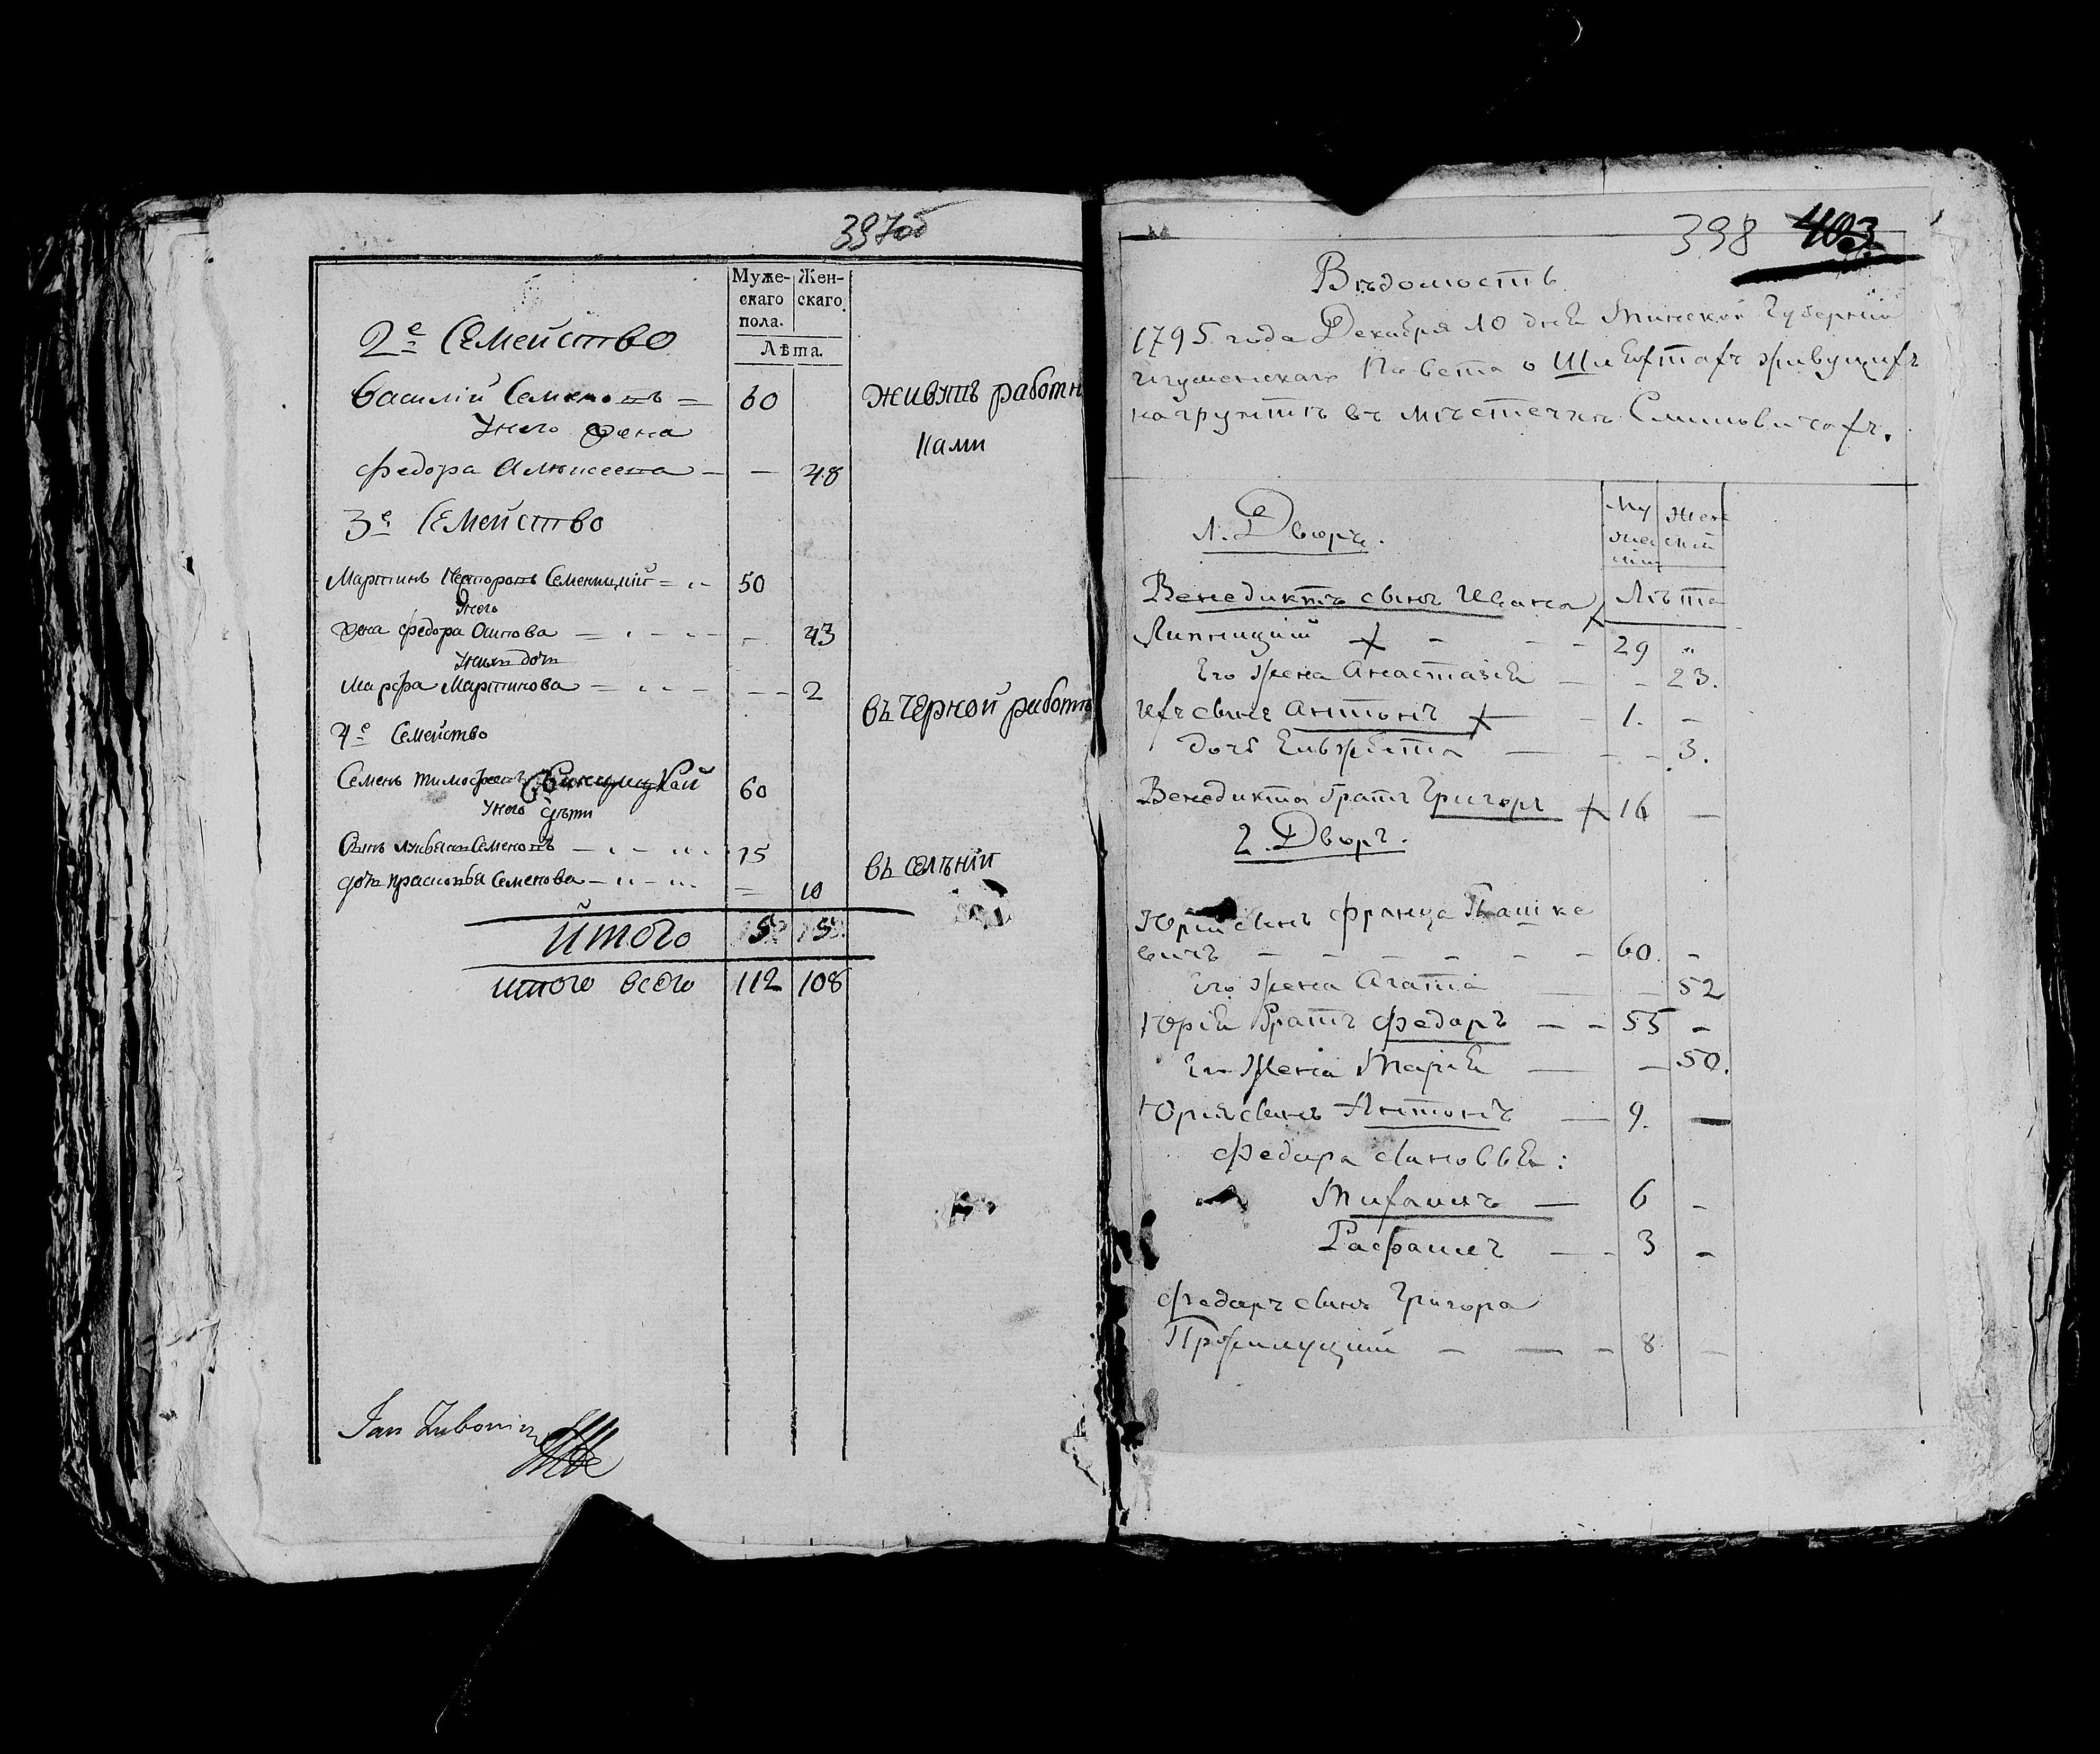 397об
Муже-
скаго
пола.
Жен-
скаго
Лѣта.
2е Семейство
Василій Семеновъ
60
Живутъ работн
ками
У него жена
Федора Алексеева
48
3е Семейство
Мартинъ Семеницкій
50
У него
жена Федора Осипова
43
У нихъ дочь
Марфа Мартинова
2
въ черной работѣ
4е Семейство
Семенъ Тимофеевъ
60
У него дѣти
Сынъ Семеновъ
15
дочь Прасковья Семенова
10
въ селѣніи
Итого
5
5
итого всего
112
108
Jan
398
403
Вѣдомость
1795 года Декабря 10 дня Минской Губерніи
Игуменскаго Повета о Шляхтахъ живущихъ
на грунтѣ въ мѣстечкѣ Смиловичахъ.
1. Дворъ.
Му
жес
кій
Жен
скій
Лѣта
Венедиктъ сынъ Ивана
Липницкій
29
Его жена Анастазія
23.
Ихъ сынъ Антонъ
1.
дочь Ельжбета
3.
Венедикта братъ Григоръ
16
2. Дворъ.
Юрій сынъ Франца
вичъ
60.
Его жена Агата
52
Юрія братъ Федоръ
55
Его жена Марія
50.
Юрія сынъ Антонъ
9.
Федора сыновья:
Михаилъ
6
Рафаилъ
3
Федоръ сынъ Григора
8